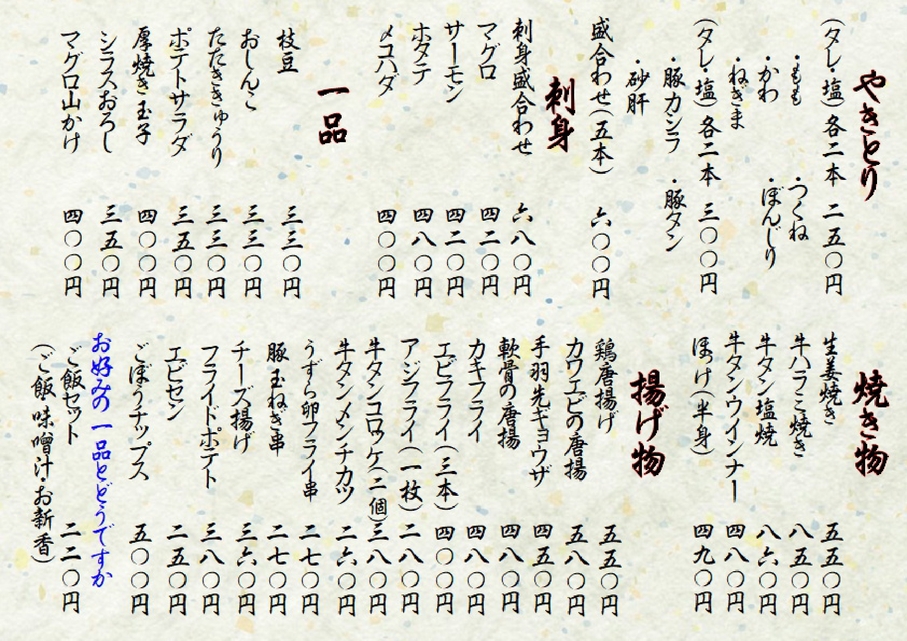 やきとり
(タレ・塩)各二本 二五〇円
・もも ・つくね
・かわ ・ぼんじり
・ねぎま
(タレ・塩)各二本 三〇〇円
・豚カシラ ・豚タン
・砂肝
盛合わせ(五本) 六〇〇円
刺身
刺身盛合わせ 六八〇円
マグロ 四二〇円
サーモン 四二〇円
ホタテ 四八〇円
メコハダ 四〇〇円
一品
枝豆 三三〇円
おしんこ 三三〇円
たたききゅうり 三三〇円
ポテトサラダ 三五〇円
厚焼き玉子 四〇〇円
シラスおろし 三五〇円
マグロ山かけ 四〇〇円
焼き物
生姜焼き 五五〇円
牛ハラミ焼き 八五〇円
牛タン塩焼 八六〇円
牛タンウインナー 四八〇円
ほっけ(半身) 四九〇円
揚げ物
鶏唐揚げ 五五〇円
カワエビの唐揚 五八〇円
手羽先ギョウザ 四五〇円
軟骨の唐揚 四八〇円
カキフライ 四八〇円
エビフライ(三本) 四〇〇円
アジフライ(一枚) 二八〇円
牛タンコロッケ(二個) 三八〇円
牛タンメンチカツ 二六〇円
うずら卵フライ串 二七〇円
豚玉ねぎ串 二七〇円
チーズ揚げ 三六〇円
フライドポテト 三八〇円
エビセン 二五〇円
ごぼうチップス 五〇〇円
お好みの一品とどうですか
ご飯セット 二二〇円
(ご飯・味噌汁・お新香)